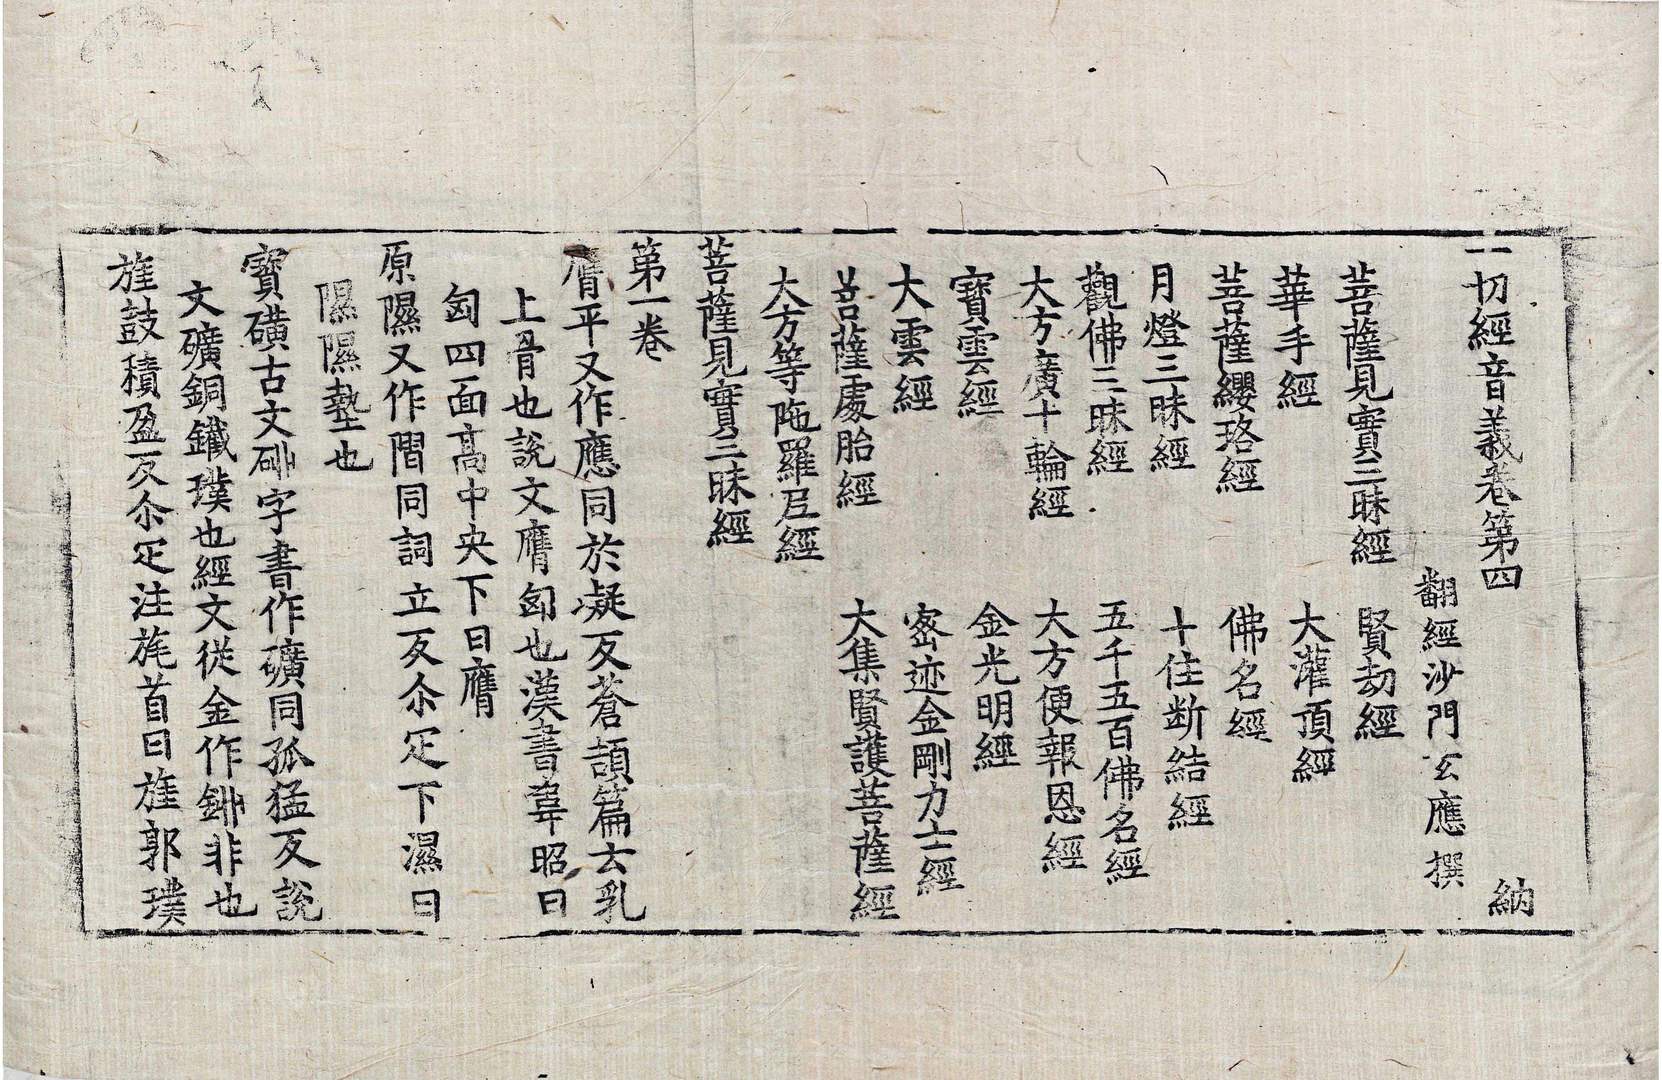 一切經音義卷第四 納
翻經沙門玄應撰
菩薩見實三昧經 賢劫經
華手經 大灌頂經
菩薩纓珞經 佛名經
月燈三昧經 十住断結經
觀佛三昧經 五千五百佛名經
大方廣十輪經 大方便報恩經
寶雲經 金光明經
大雲經 密迹金剛力士經
菩薩處胎經 大集賢護菩薩經
大方等陁羅尼經
菩薩見實三昧經
第一卷
膺平又作應同於凝反蒼頡篇云乳
上骨也說文膺匈也漢書韋昭曰
匈四面高中央下曰膺
原隰又作㬎同詞立反尒疋下濕曰
隰隰墊也
寶磺古文砽字書作礦同孤猛反說
文礦銅鐵璞也經文從金作鉚非也
旌鼓積盈反尒疋注旄首曰旌郭璞